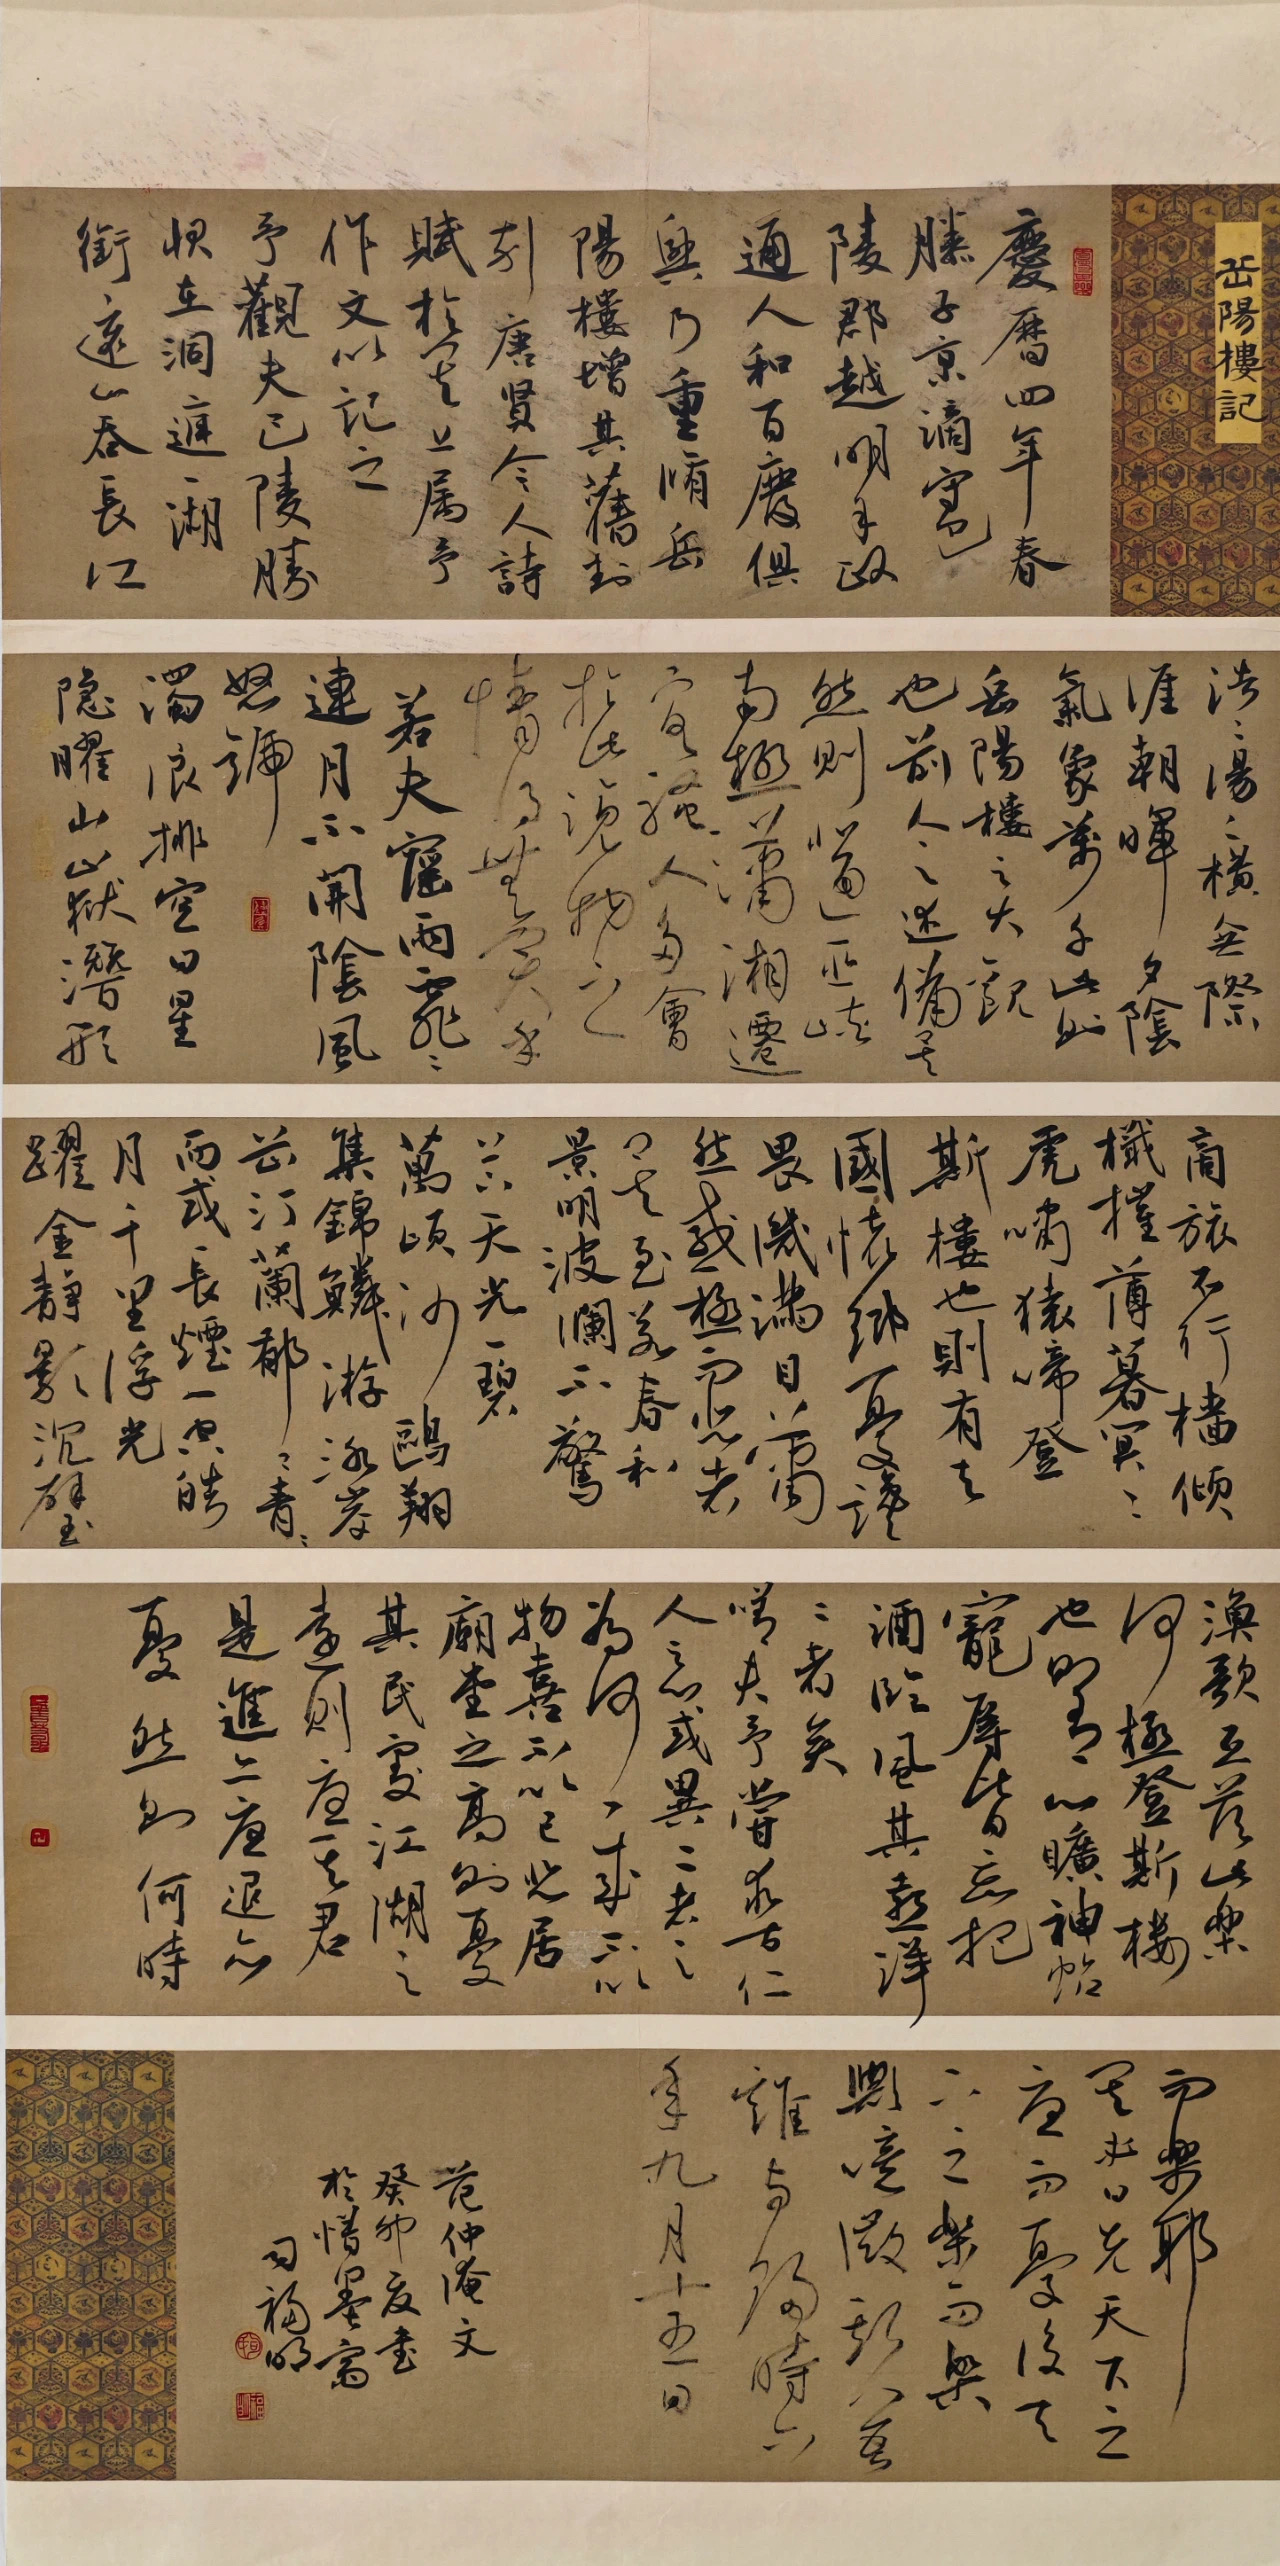 岳陽樓記
慶曆四年春
滕子京謫守巴
陵郡越明年政
通人和百廢俱
興乃重脩岳
陽樓增其舊制
刻唐賢今人詩
賦於其上属予
作文以記之
予觀夫巴陵勝
狀在洞庭一湖
銜遠山吞長江
浩〻湯〻橫無際
涯朝暉夕陰
氣象萬千此則
岳陽樓之大觀
也前人之述備矣
然則北通巫峽
南極瀟湘遷
客騷人多會
於此覽物之
情得無異乎
若夫霪雨霏〻
連月不開陰風
怒號
濁浪排空日星
隐曜山岳潛形
商旅不行檣傾
檝摧薄暮冥〻
虎嘯猿啼登
斯樓也則有去
國懷鄉憂讒
畏譏滿目蕭
然感極而悲者
矣至若春和
景明波瀾不驚
上下天光一碧
萬頃沙鷗翔
集錦鱗游泳岸
芷汀蘭郁〻青〻
而或長煙一空皓
月千里浮光
躍金靜影沉璧
漁歌互答此樂
何極登斯樓
也則有心曠神怡
寵辱皆忘把
酒臨風其喜洋
〻者矣
嗟夫予嘗求古仁
人之心或異二者之
為何哉不以
物喜不以己悲居
廟堂之高則憂
其民處江湖之
遠則憂其君
是進亦憂退亦
憂然則何時
而樂耶
其必曰先天下之
憂而憂後天
下之樂而樂
歟噫微斯人吾
誰與歸時六
年九月十五日
范仲淹文
癸卯夏書
於惜墨齋
福明